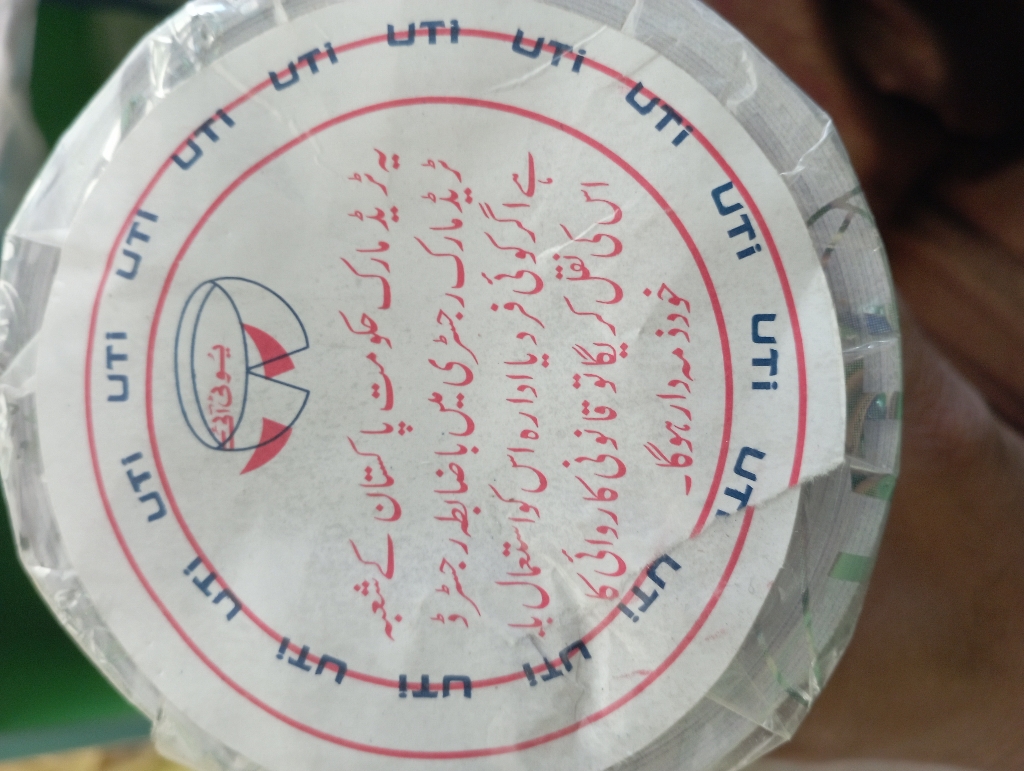 UTi UTi UTi UTi UTi UTi UTi UTi UTi UTi UTi UTi UTi UTi UTi
یو ٹی آئی
یہ ٹریڈ مارک حکومت پاکستان کے شعبہ
ٹریڈ مارک رجسٹری میں باضابطہ رجسٹرڈ
ہے اگر کوئی فرد یا ادارہ اس کو استعمال یا
اس کی نقل کریگا تو قانونی کاروائی کا
خود ذمہ دار ہوگا۔